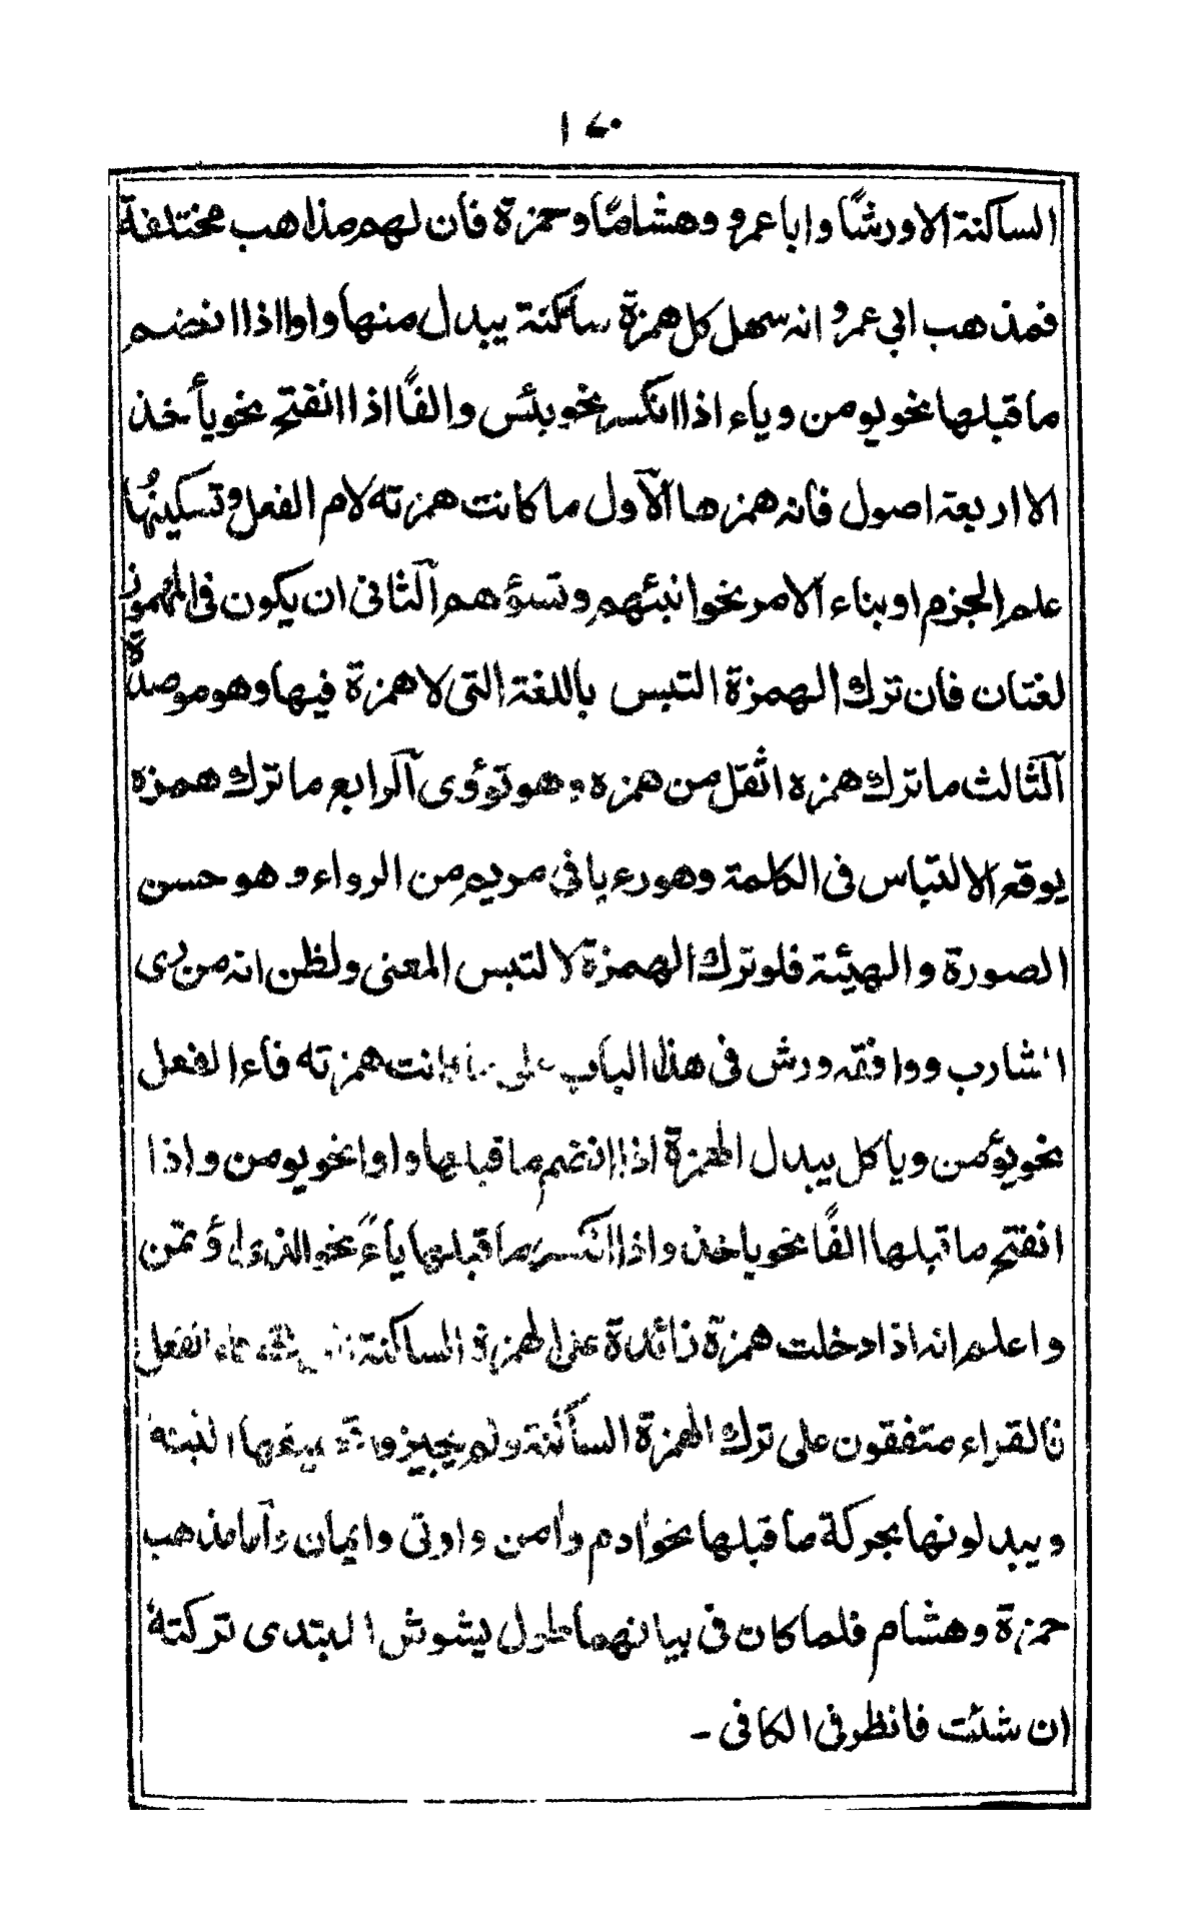 ١٤٠
الساكنة الا ورشًا وابا عمرو وهشامًا وحمزة فان لهم مذاهب مختلفة
فمذهب ابي عمرو انه سهل كل همزة ساكنة يبدل منها واوا اذا انضم
ما قبلها نحو يومن وياء اذا انكسر نحو بئس والفًا اذا انفتح نحو يأخذ
الا اربعة اصول فانه همزها الآول ما كانت همزته لام الفعل وتسكينها
علم الجزم او بناء الامر نحو انبئهم وتسؤهم آلثانى ان يكون فى المهموز
لغتان فان ترك الهمزة التبس باللغة التى لا همزة فيها وهو موصدة
آلثالث ما ترك همزه اثقل من همزه وهو تؤوى آلرابع ما ترك همزه
يوقع الالتباس فى الكلمة وهو رءيا فى مريم من الرواء وهو حسن
الصورة والهيئة فلو ترك الهمزة لالتبس المعنى ولظن انه من رى
الشارب ووافقه ورش فى هذا الباب على ما كانت همزته فاء الفعل
نحو يؤمن وياكل يبدل الهمزة اذا انضم ما قبلها واوا نحو يومن واذا
انفتح ما قبلها الفًا نحو ياخذ واذا انكسر ما قبلها ياءً نحو الذى اؤتمن
واعلم انه اذا دخلت همزة زائدة على الهمزة الساكنة فاء الفعل
فالقراء متفقون على ترك الهمزة الساكنة ولم يجيزوا البتة
ويبدلونها بحركة ما قبلها نحو ادم وامن واوتى وايمان وآما مذهب
حمزة وهشام فلما كان فى بيانهما طول يشوش المبتدى تركته
ان شئت فانظر فى الكافى ـ